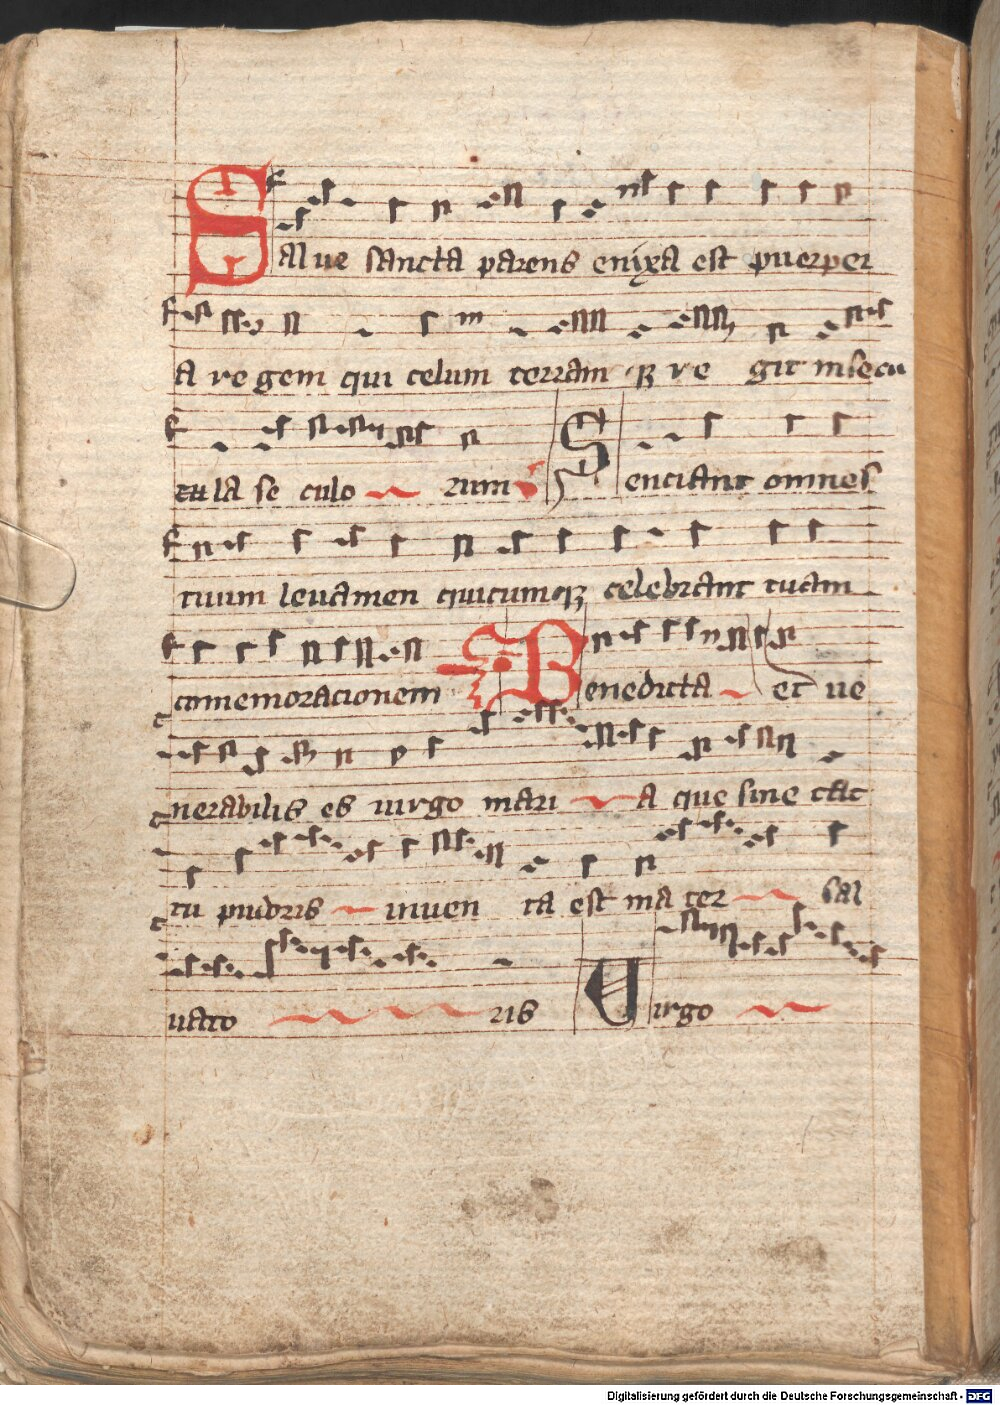 Salue sancta parens enixa est puerper
a regem qui celum terram qꝫ re git in secu
la se culo rum Senciant omnes
tuum leuamen quicumqꝫ celebrant tuam
cōmemoracionem Benedicta et ue
nerabilis es uirgo mari a que sine tac
tu pudoris inuen ta est ma ter sal
uato ris Uirgo
Digitalisierung gefördert durch die Deutsche Forschungsgemeinschaft - DFG